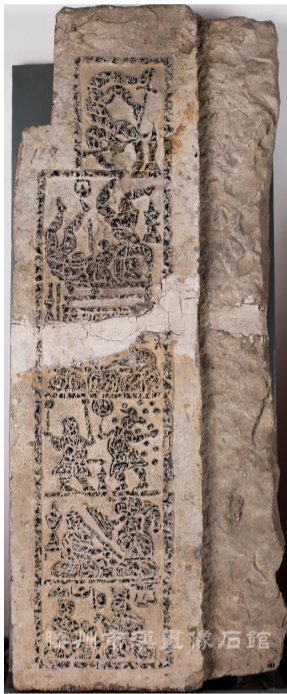 滕州市漢畫像石館